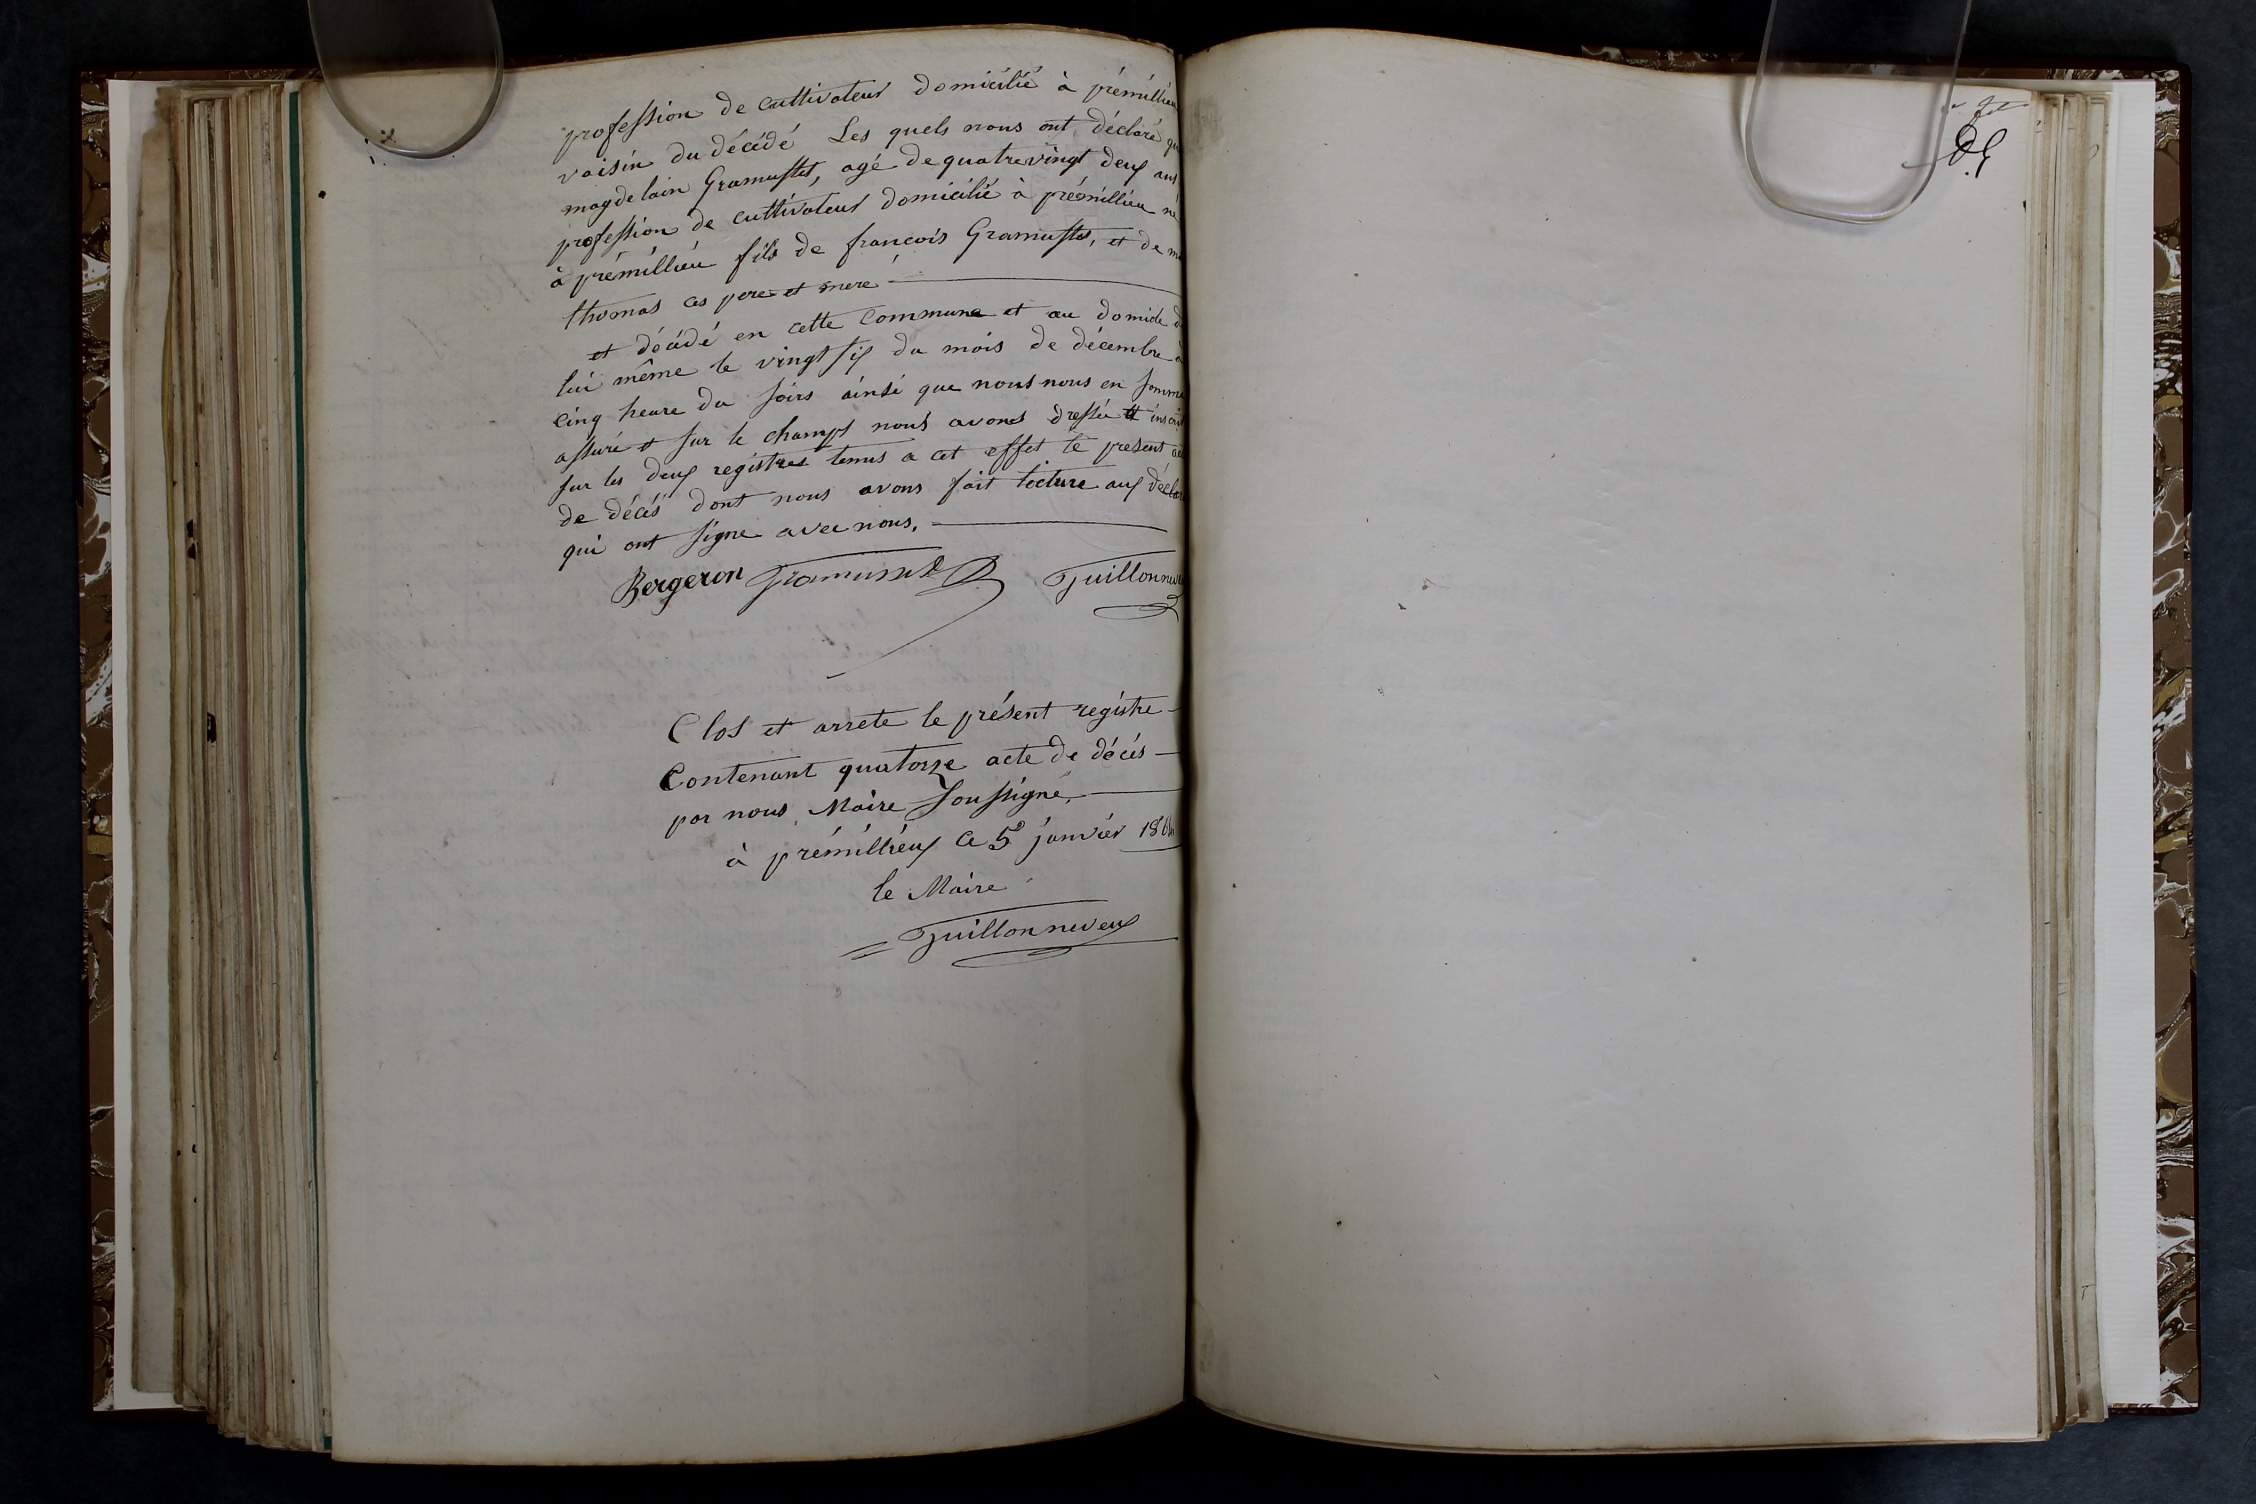 profession de cultivateur domicilié à prémillieu
voisin du décédé Les quels nous ont déclaré que
magdelain Gramusset, agé de quatrevingt deux ans
profession de cultivateur domicilié à prémillieu né
à prémillieu fils de françois Gramusset, et de
thomas ces pere et mere
et décédé en cette commune et au domicile d
lui même le vingt six du mois de décembre à
cinq heure du soirs ainsi que nous nous en somme
assuré et sur le champs nous avons dressée et inscrit
sur les deux registres tenus a cet effet le present
de décés dont nous avons fait lecture aux
qui ont signe avec nous.
Bergeron Gramusset Guillonneveu
Clos et arrete le présent registre
Contenant quatorze acte de décés
par nous Maire soussigné.
à prémillieux ce 5 janvier
le Maire
Guillonneveux